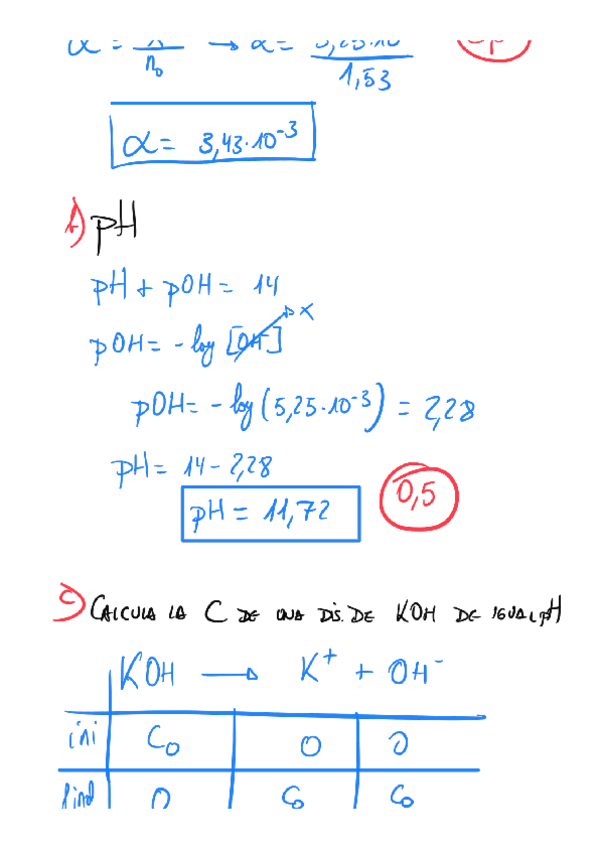 α = n/n₀ → α = 5,25·10 / 1,53
α = 3,43·10⁻³
pH
pH + pOH = 14
pOH = -log [OH⁻] x
pOH = -log (5,25·10⁻³) = 2,28
pH = 14 - 2,28
pH = 11,72
0,5
c) CALCULA LA C DE UNA DIS. DE KOH DE IGUAL pH
KOH → K⁺ + OH⁻
ini C₀ 0 0
final 0 C₀ C₀